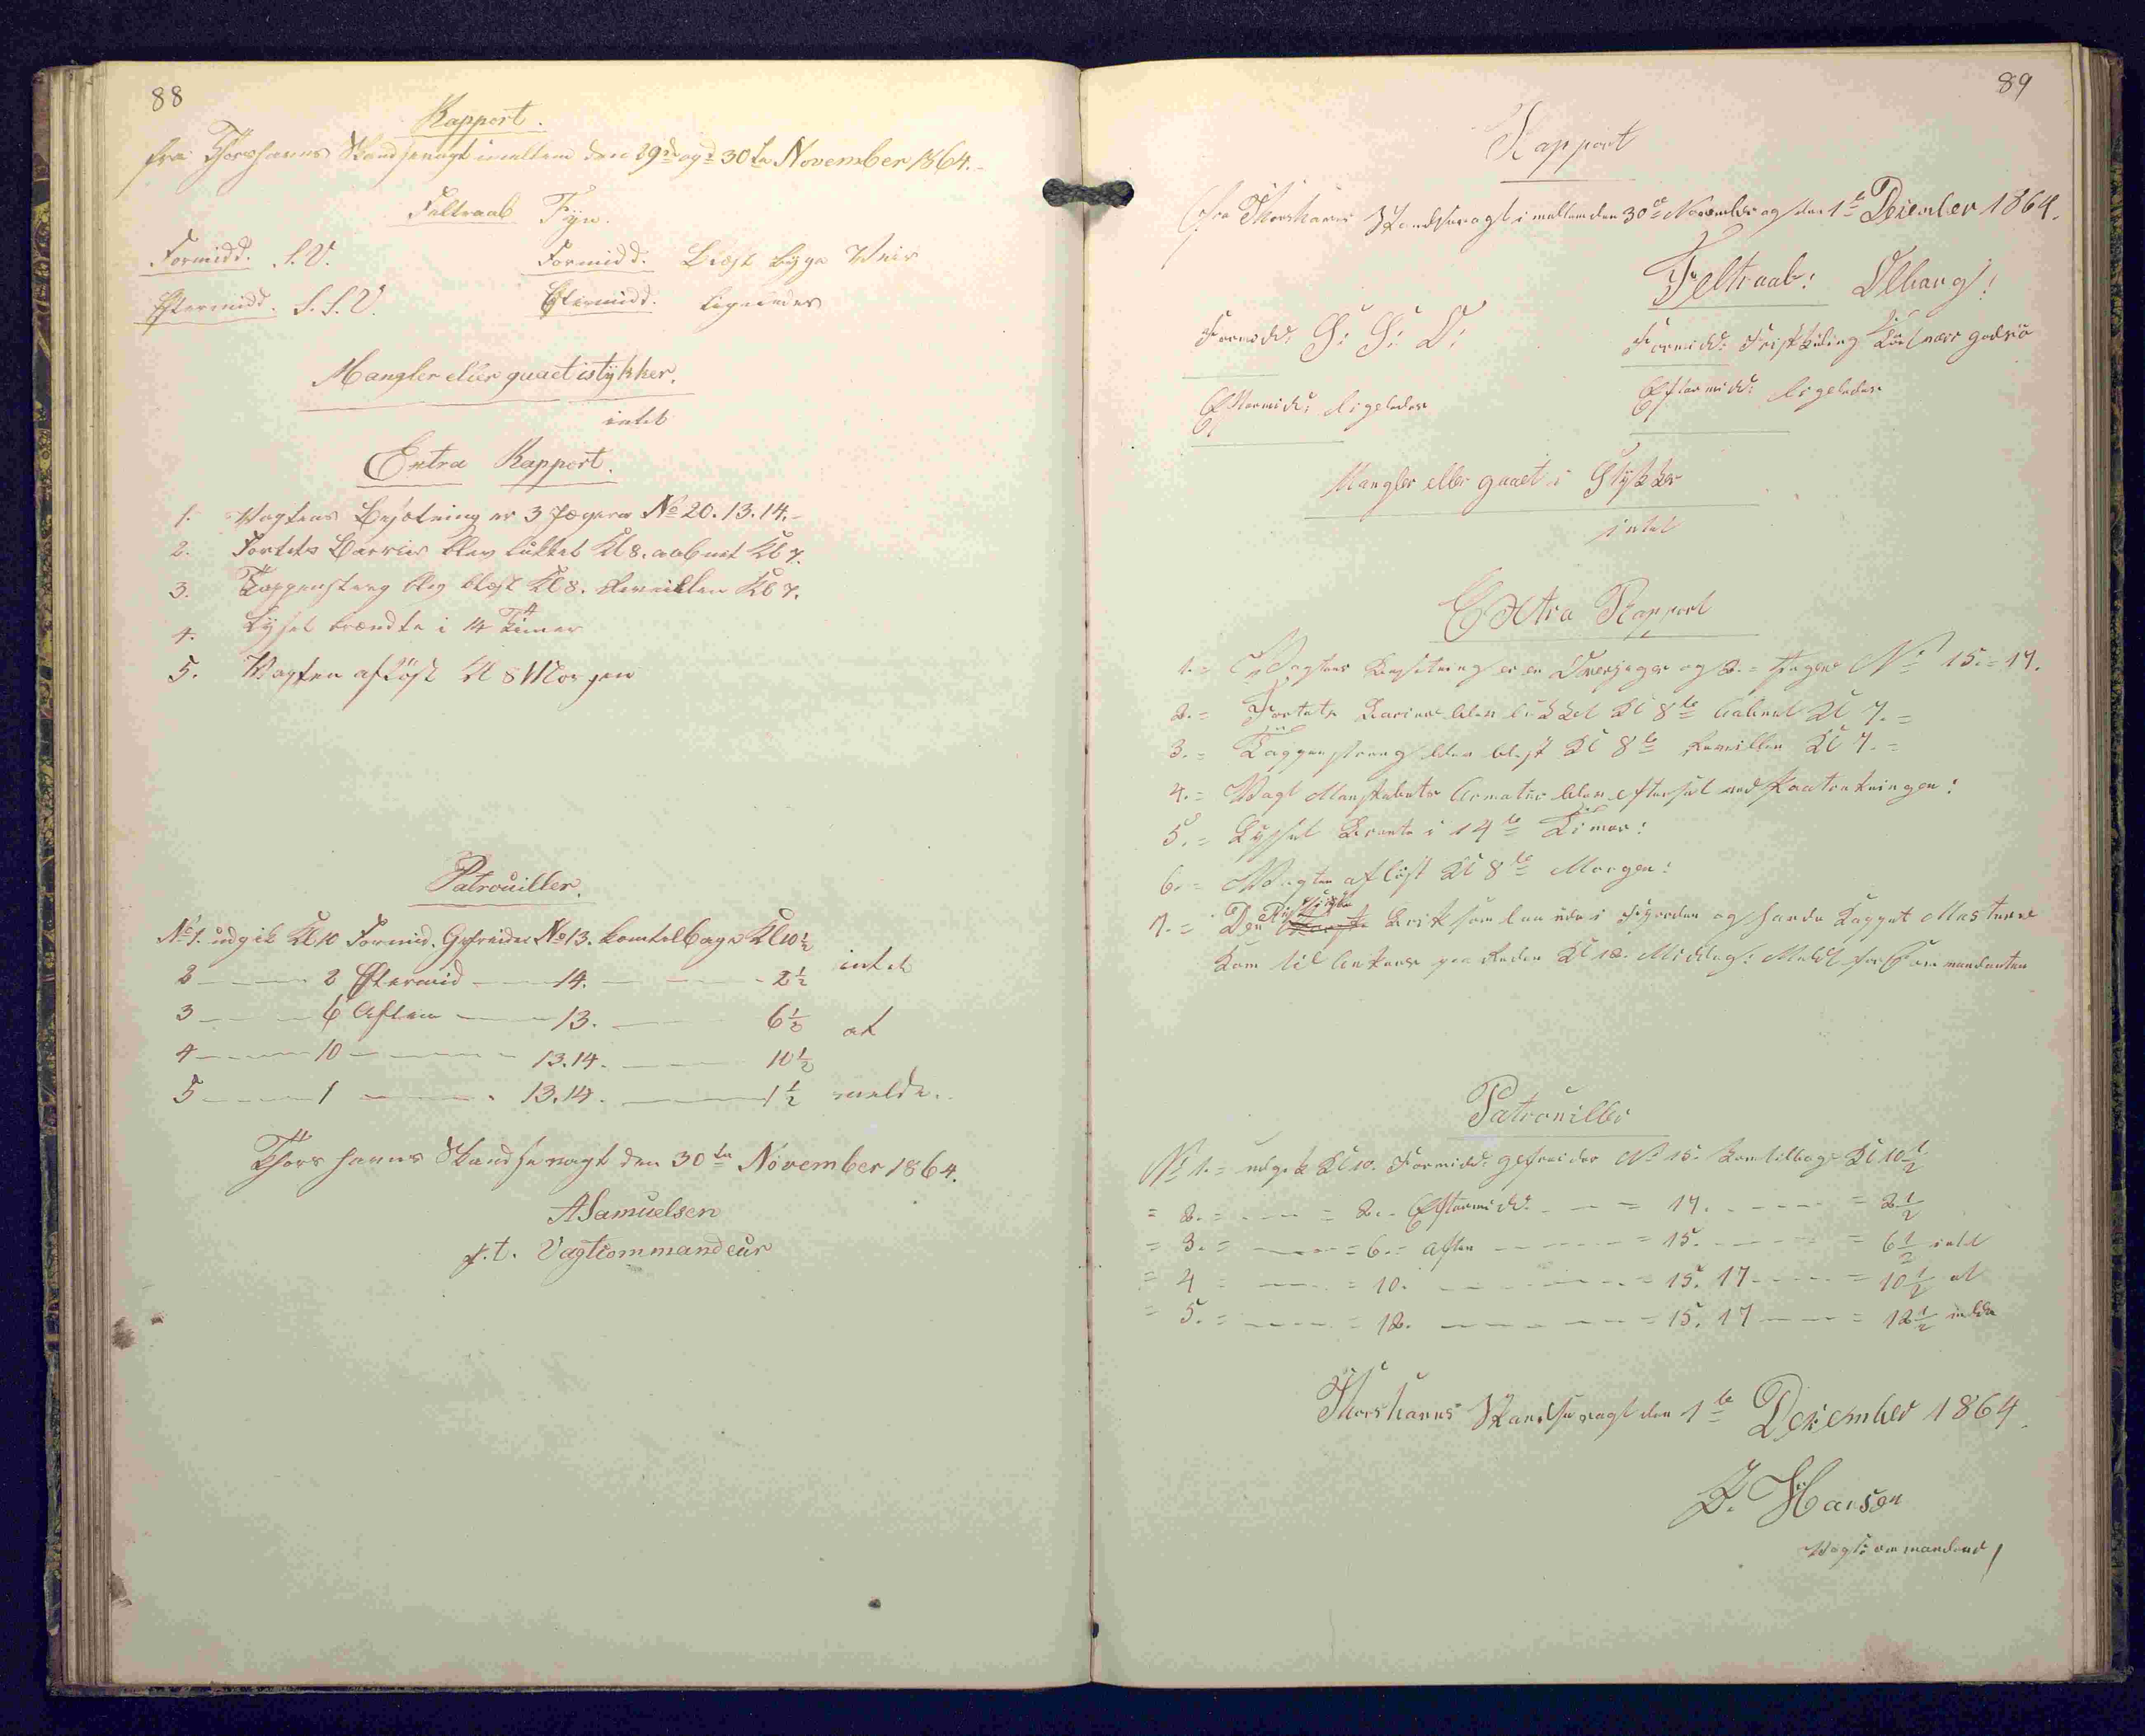 88
Rapport.
fra Thorshavns Skandsevagt imellem den 29de og 30te November 1864.-
Feltraab Fyn.
Formidd. S.V. Formidd. Blæst Byge Veir
Eftermidd. S.S.V. Eftermidd. Ligeledes
Mangler eller gaaet istykker.
intet
Extra Rapport.
1. Vagtens Besætning er 3 Jægere No 20. 13. 14.-
2. Fortets Barrier blev lukket Kl 8. aabnet Kl 7.
3. Tappenstreg blev blæst Kl 8. Reveillen Kl 7.
4. Lyset brændte i 14 Timer
5. Vagten afløst Kl 8 Morgen
Patrouiller.
No 1. udgik Kl 10 Formid. Gefreider No 13. kom tilbage Kl 10½ intet
2 — 2 Eftermid — 14. — 2½
3 — 6 Aften — 13. — 6½ at
4 — 10 — 13.14. — 10½
5 — 1 — 13.14. — 1½ melde.
Thorshavns Skandsevagt den 30te November 1864.
A Samuelsen
p.t. Vagtcommandeur
89
Rapport
fra Thorshavns Skandsevagt imellem den 30te November og den 1te Desember 1864.
Feltraab: Olborg!
Formidd: S: S: O: Formidd: Frisk Kuling
Eftermidd: ligeledes Eftermidd: ligeledes
Mangler eller gaaet i Stykker
intet
Extra Rapport
1. = Vagtens Besetning er en Overjeger og 2. = Jegere No 15. = 17.
2. = Fortets Barier blev lukket Kl 8te Aabnet Kl 7. =
3. = Tappenstreng blev blest Kl 8te Reveillen Kl 7. =
4. = Vagt Manskabets Armatur blev efterset ved Paatrekningen:
5. = Lysset Brente i 14te Timer:
6. = Vagten afløst Kl 8te Morgen:
7. = Den Brik som laa ude i Fjorden og havde Kappet Masterne
kom til Ankers paa Reden Kl 12. Middag: Meldt for Commandanten
Patrouiller
No 1. = udgik Kl 10. Formidd: gefreider No 15. kom tilbage Kl 10½
= 2. = — = 2. - Eftermidd: — = 17. — = 2½
= 3. = — = 6. = Aften — = 15. — = 6½ intet
= 4 = — = 10. — = 15. 17 — = 10½ at
= 5. = — = 12. — = 15. 17 — = 12½ melde
Thorshavns Skandsevagt den 1te Desember 1864.
Vagtcommandeur